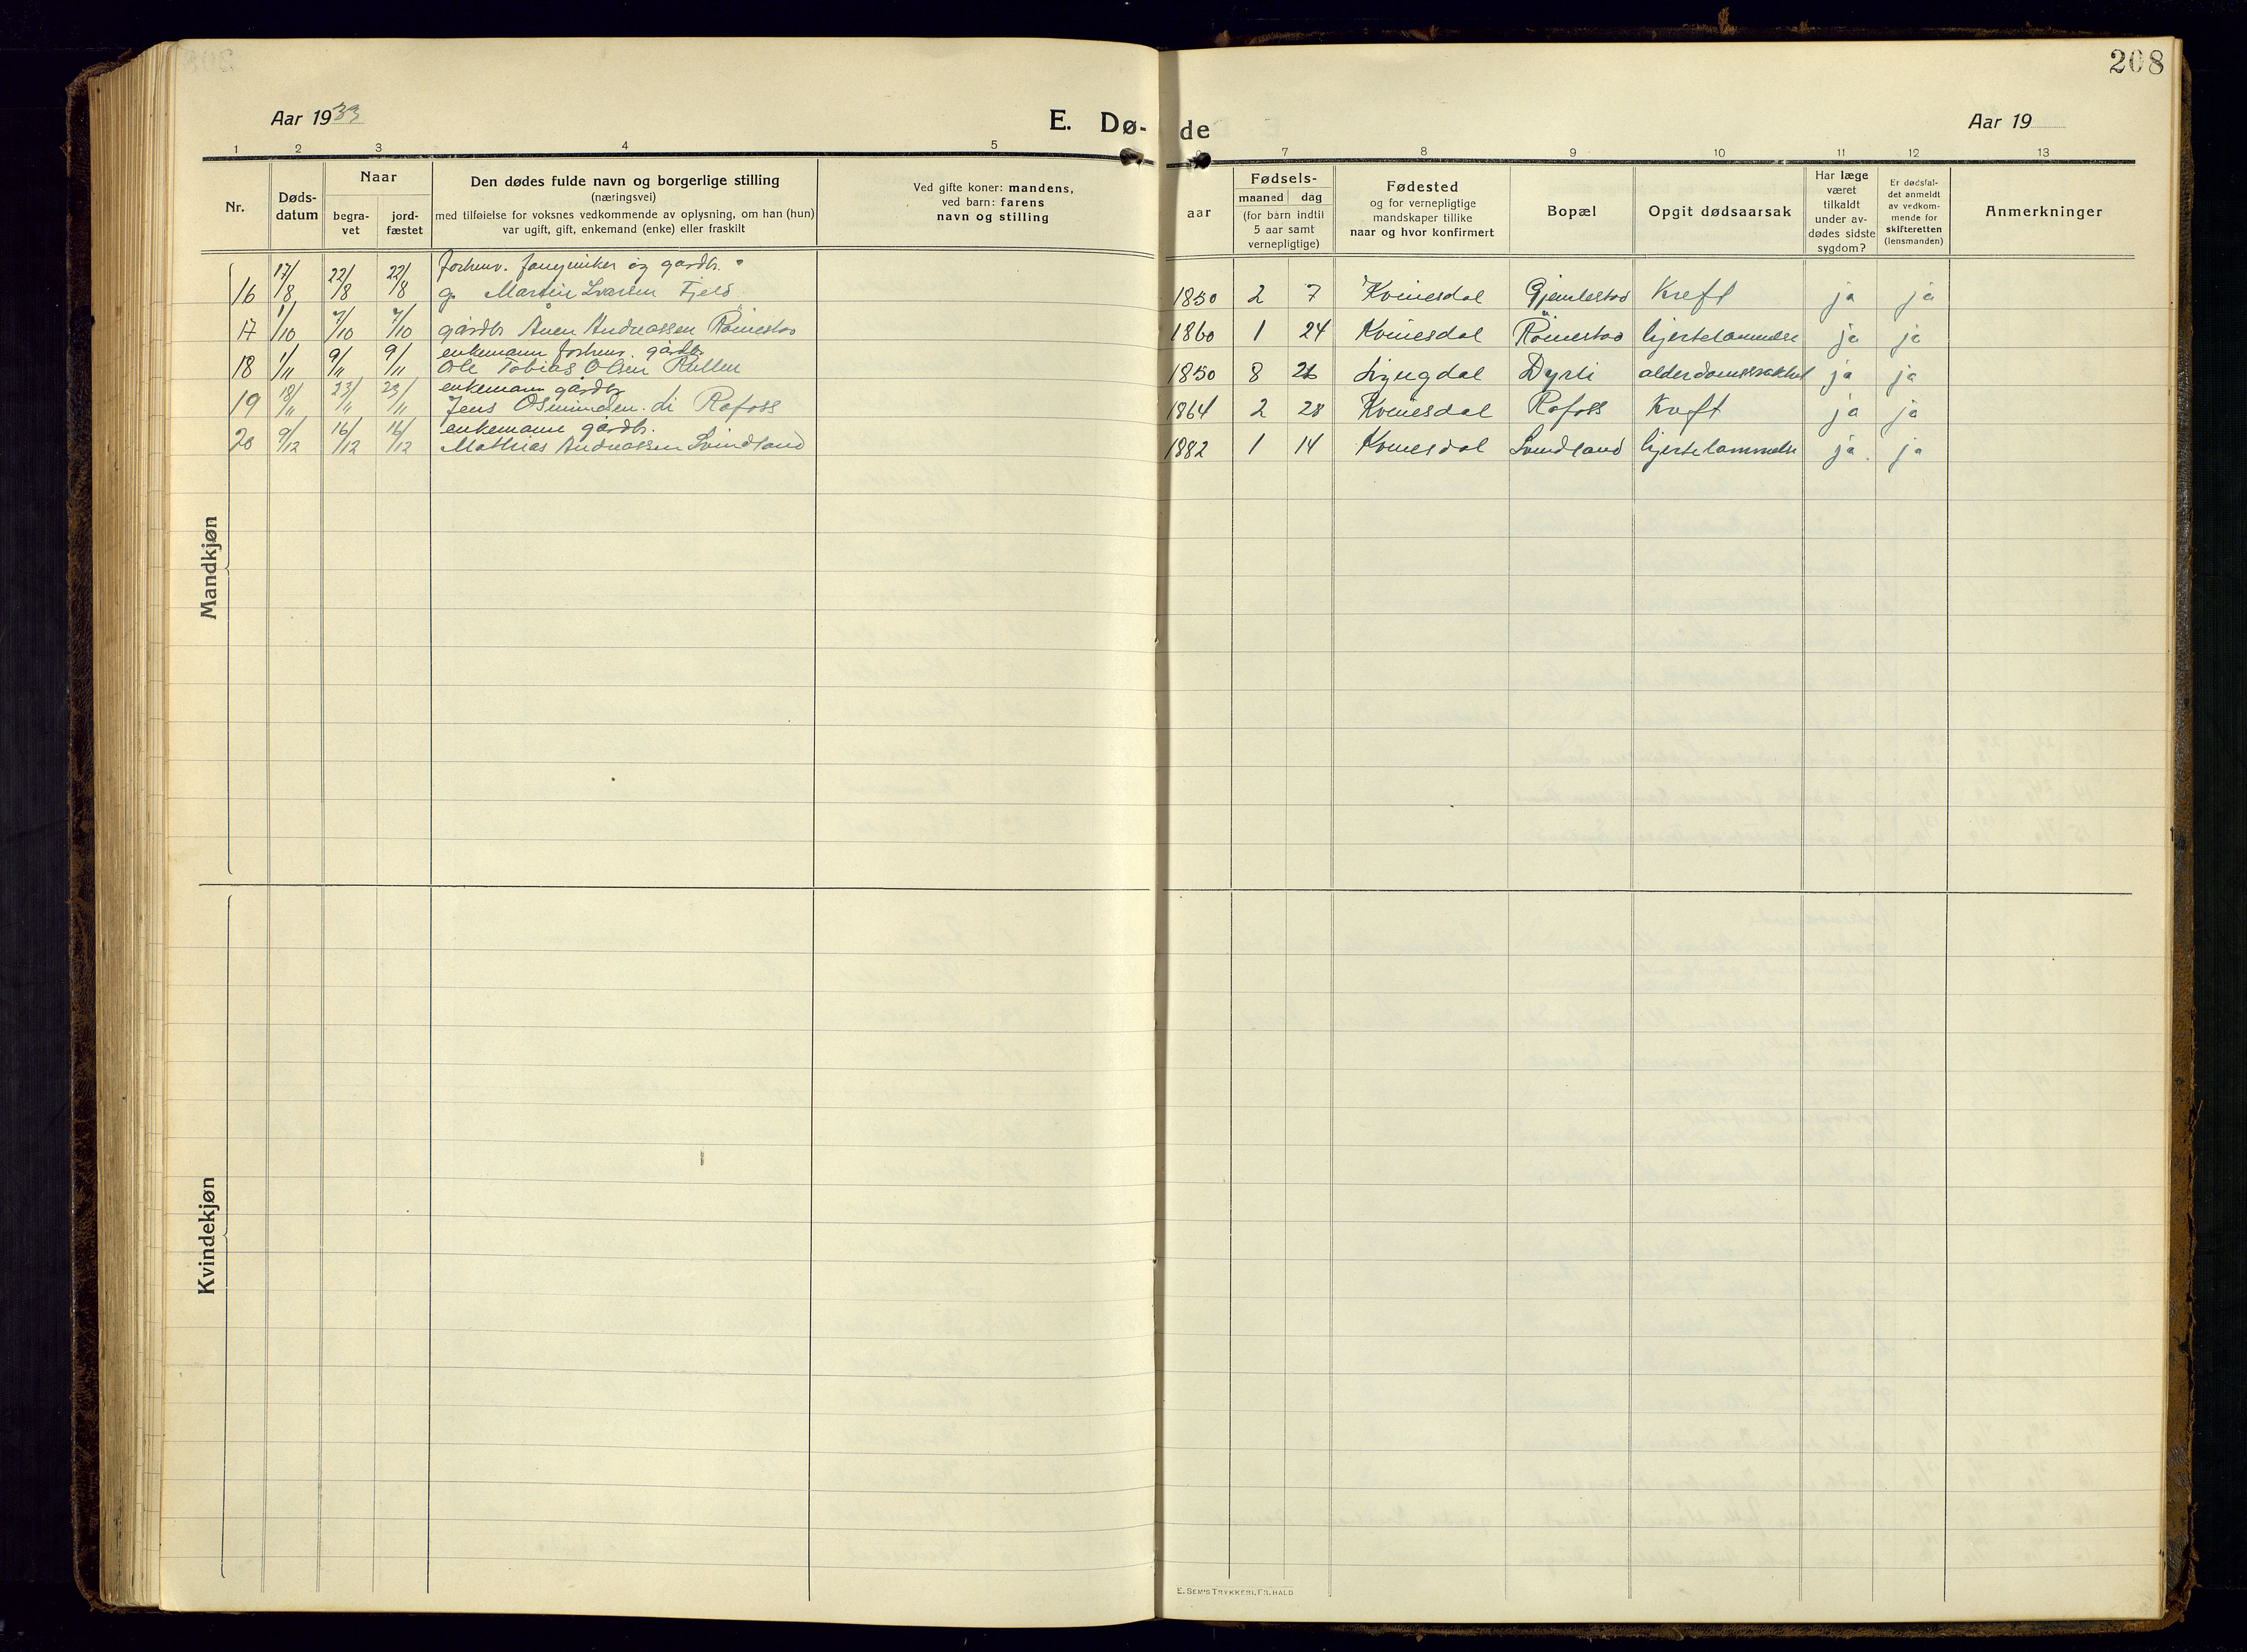 208
Aar 1933
E. Dø-
de
Aar 19
1 2 3 4 5
7 8 9 10 11 12 13
Nr.
Døds-
datum
Naar
begra-
vet
jord-
fæstet
Den dødes fulde navn og borgerlige stilling
(næringsvei)
med tilføielse for voksnes vedkommende av oplysning, om han (hun)
var ugift, gift, enkemand (enke) eller fraskilt
Ved gifte koner: mandens,
ved barn: farens
navn og stilling
aar
Fødsels-
maaned dag
(for barn indtil
5 aar samt
vernepligtige)
Fødested
og for vernepligtige
mandskaper tillike
naar og hvor konfirmert
Bopæl
Opgit dødsaarsak
Har læge
været
tilkaldt
under av-
dødes sidste
sygdom?
Er dødsfal-
det anmeldt
av vedkom-
mende for
skifteretten
(lensmanden)
Anmerkninger
Mandkjøn
forhenv. og gårdbr.
16 17/8 22/8 22/8 g. Martin Ivarsen Fjeld 1850 2 7 Kvinesdal Gjemlestad Kreft ja ja
17 1/10 7/10 7/10 gårdbr Ånen Andreassen Röinestad 1860 1 24 Kvinesdal Röinestad hjertelammelse ja ja
enkemann forhenv. gårdbr
18 1/11 9/11 9/11 Ole Tobias Olsen 1850 8 Lyngdal Dyrli ja ja
enkemann gårdbr
19 18/11 23/11 23/11 Jens Osmundsen Li Rafoss 1864 2 28 Kvinesdal Rafoss Kreft ja ja
enkemann gårdbr.
20 9/12 16/12 16/12 Mathias Andreassen Svindland 1882 1 14 Kvinesdal Svindland hjertelammelse ja ja
Kvindekjøn
E. SEM'S TRYKKERI, FR. HALD